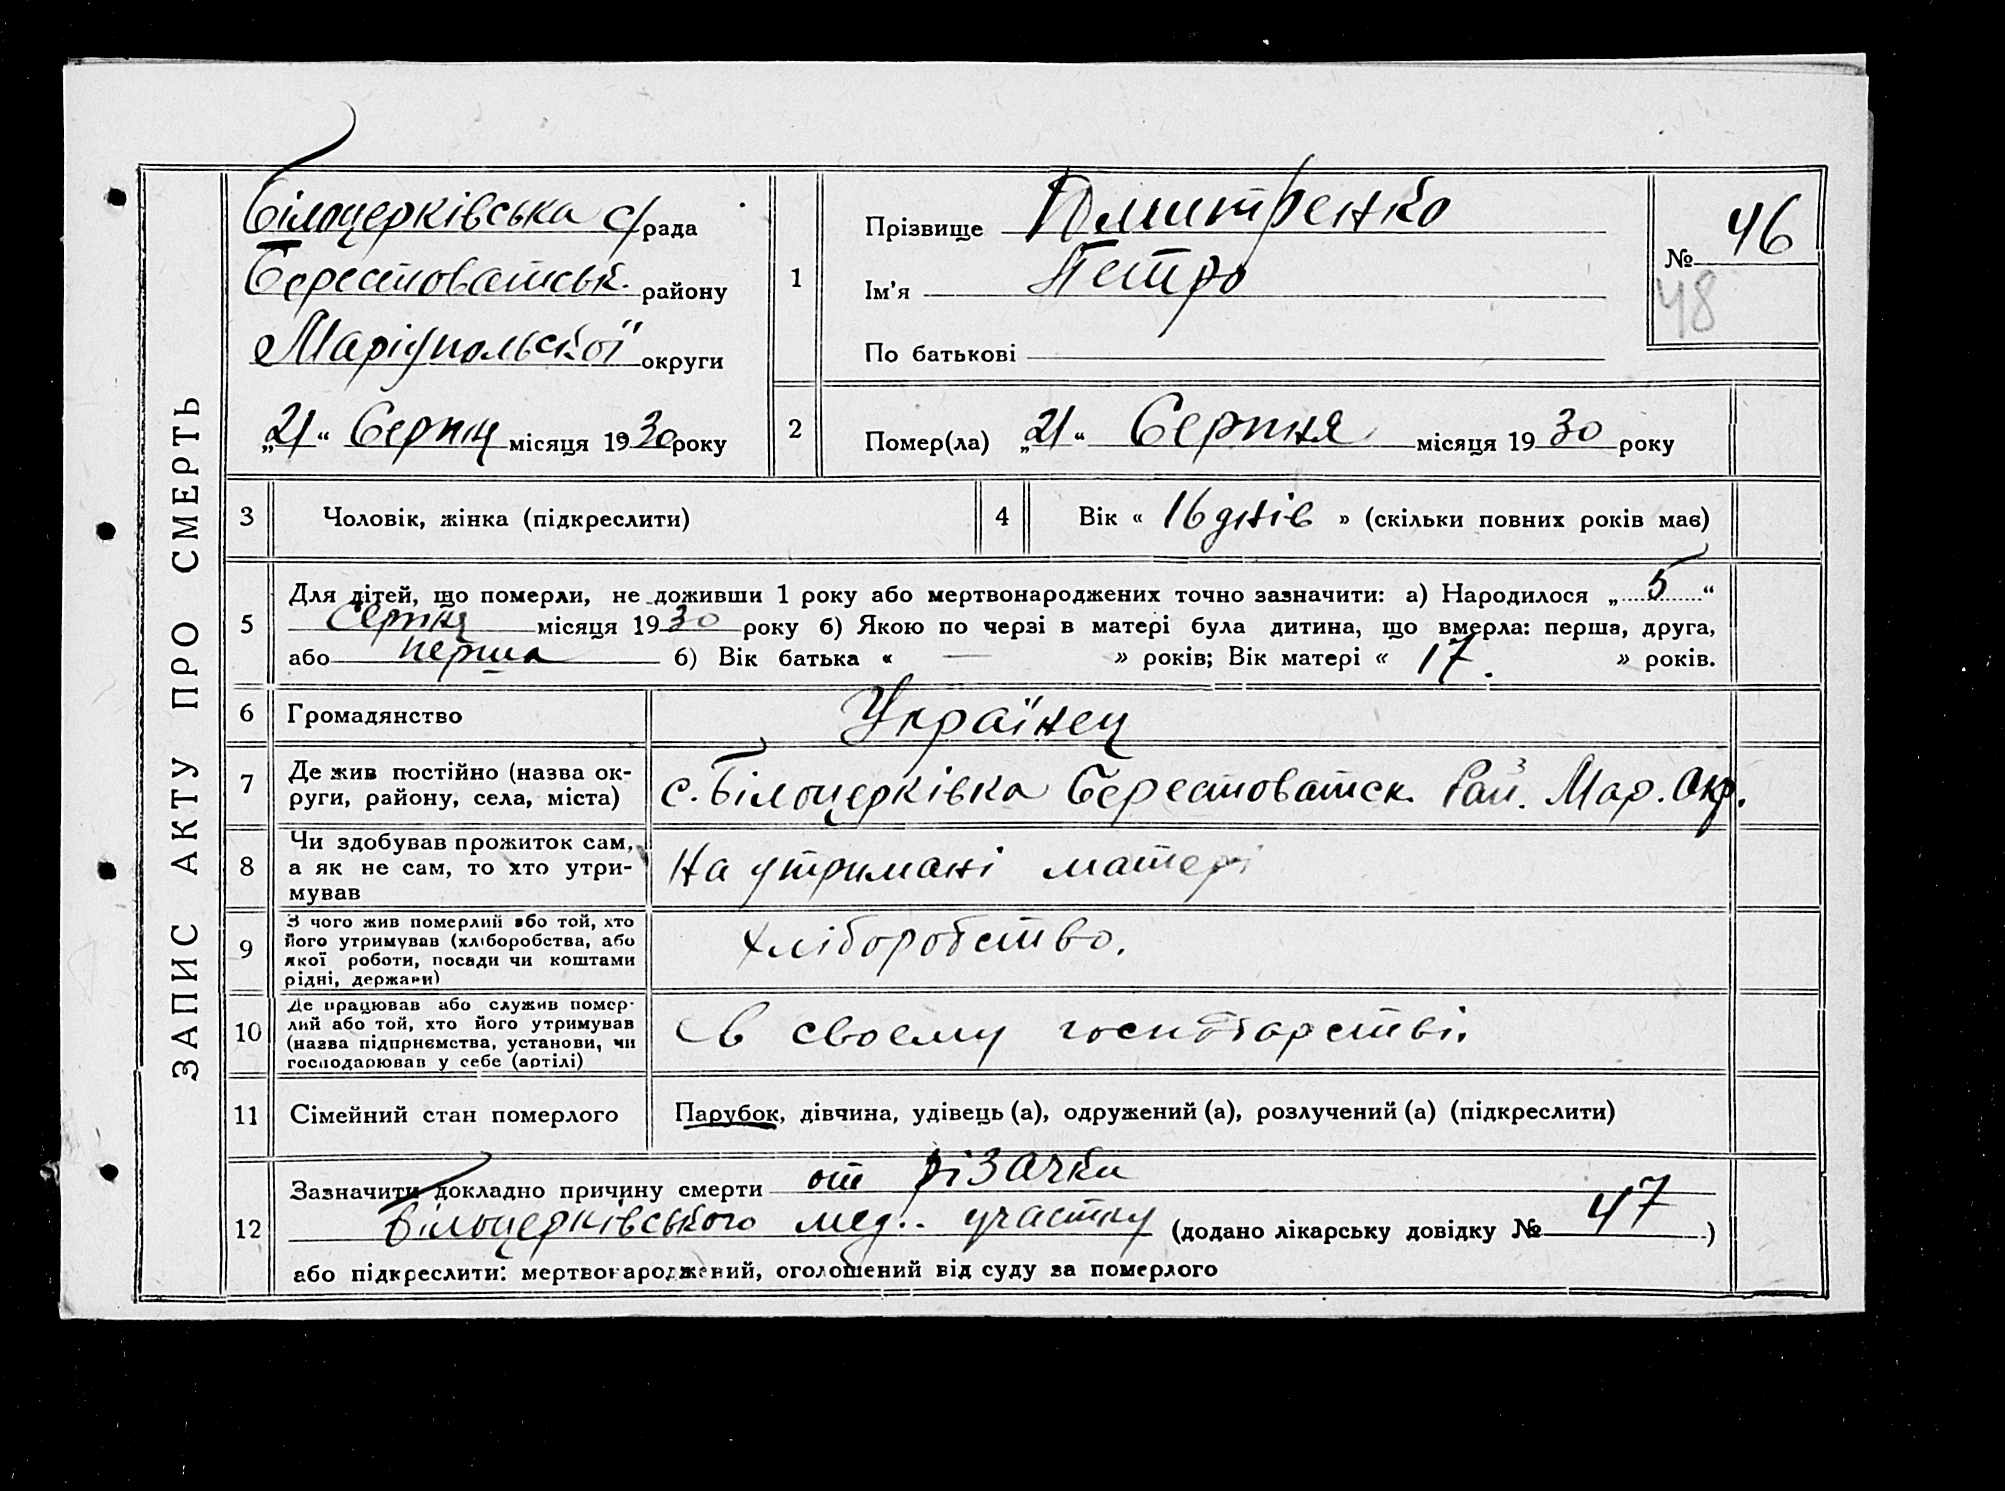 ЗАПИС АКТУ ПРО СМЕРТЬ
Білоцерківська с/рада
Берестоватськ. району
Маріупольської округи
„21“ Серпня місяця 1930 року
1
Прізвище Дмитренко
Ім'я Петро
По батькові
№ 46
48
2
Помер(ла) „21“ Серпня місяця 1930 року
3 Чоловік, жінка (підкреслити)
4 Вік « 16 днів » (скільки повних років має)
5
Для дітей, що померли, не доживши 1 року або мертвонароджених точно зазначити: а) Народилося „5“
Серпня місяця 1930 року б) Якою по черзі в матері була дитина, що вмерла: перша, друга,
або перша б) Вік батька « — » років; Вік матері « 17. » років.
6 Громадянство Українец
7 Де жив постійно (назва ок-
руги, району, села, міста)
с. Білоцерківка Берестоватск. Рай. Мар. Окр.
8 Чи здобував прожиток сам,
а як не сам, то хто утри-
мував
на утримані матері
9 З чого жив померлий або той, хто
його утримував (хліборобства, або
якої роботи, посади чи коштами
рідні, держави)
хліборобство.
10 Де працював або служив помер-
лий або той, хто його утримував
(назва підприємства, установи, чи
господарював у себе (артілі)
в своему господарстві.
11 Сімейний стан померлого Парубок, дівчина, удівець (а), одружений (а), розлучений (а) (підкреслити)
12
Зазначити докладно причину смерти от різачки
Білоцерківського мед. участку (додано лікарську довідку № 47)
або підкреслити: мертвонароджений, оголошений від суду за померлого